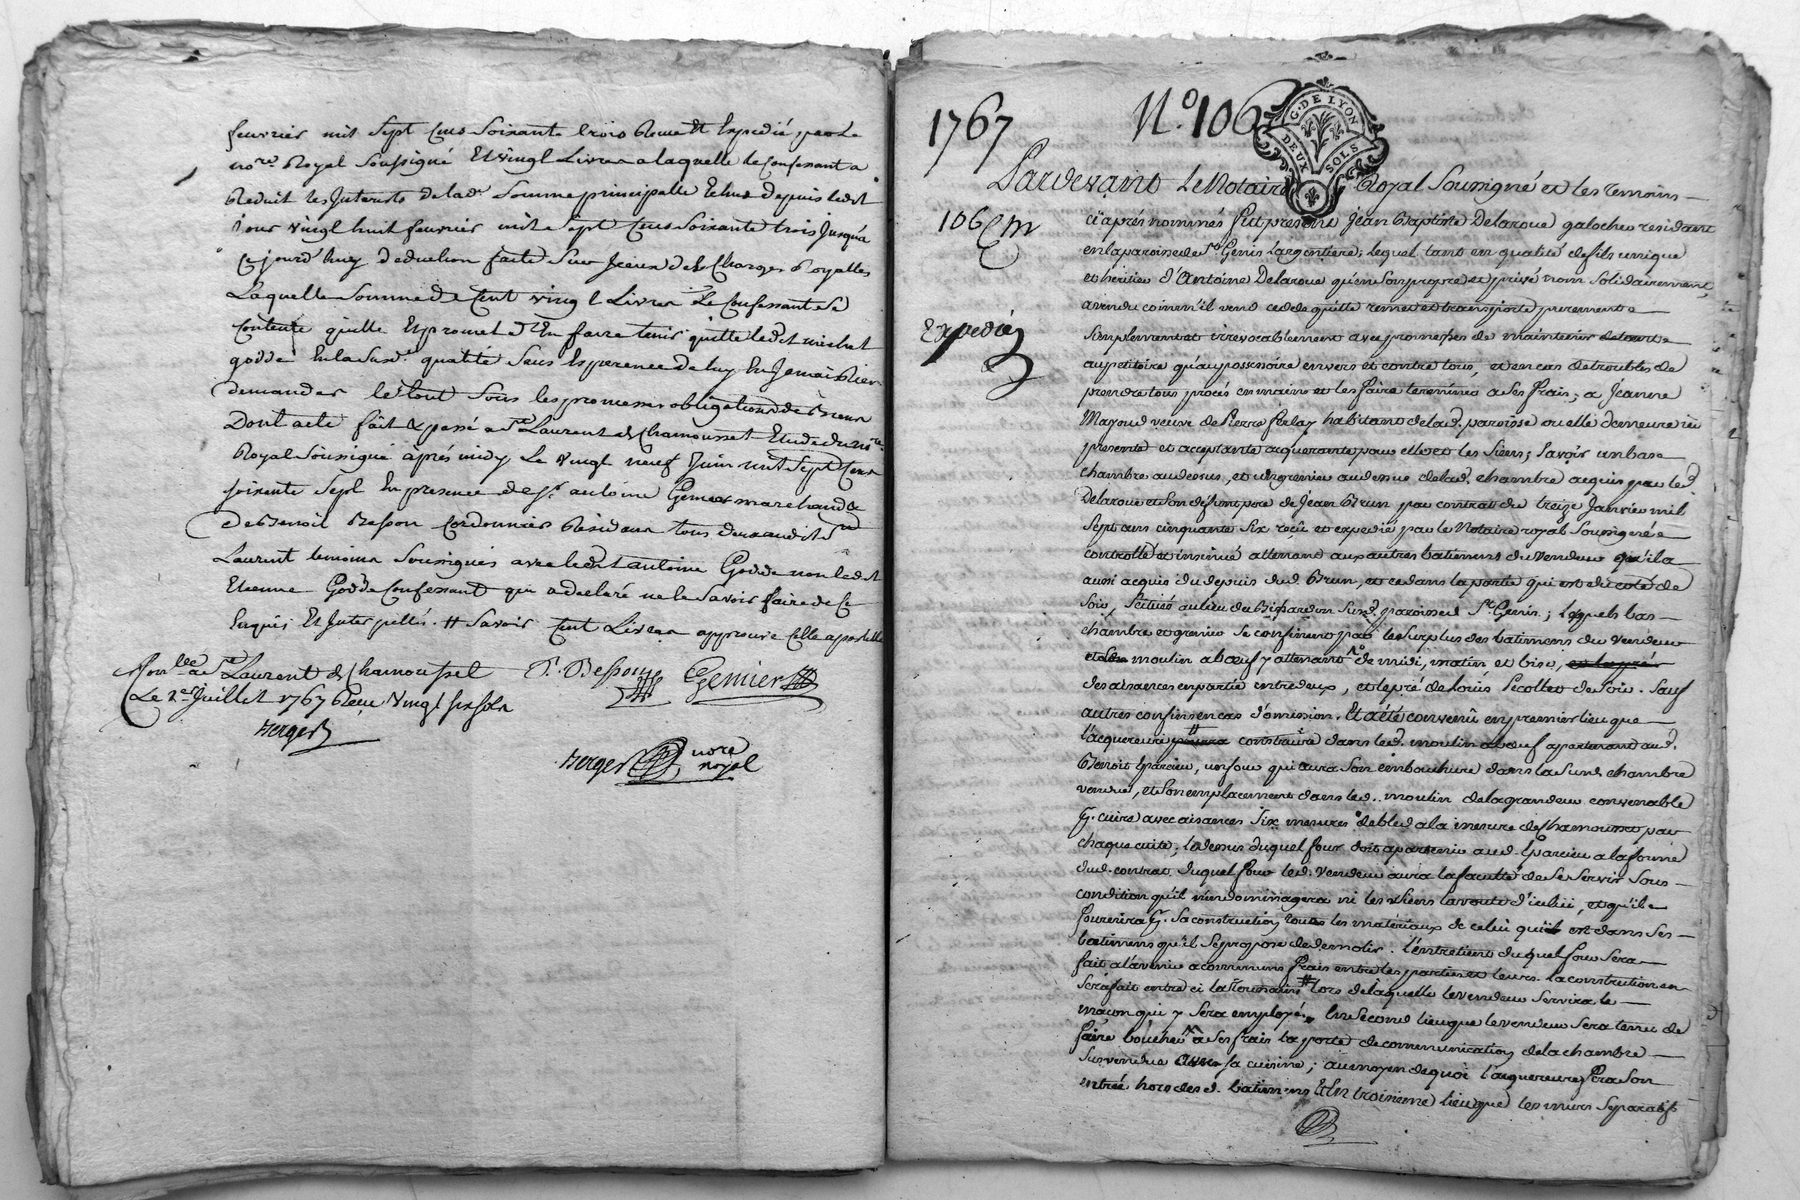 fevrier mil sept cens soixante trois Receu et Expedié par le
no.re Royal soussigné Et vingt Livres a laquelle le confessant a
Reduit les Interests de lad.e somme principalle Echus depuis ledit
jour vingt huit fevrier mil sept cens soixante trois jusqu'a
ce jourd'huy deduction faite sur Iceux des Charges Royalles
Laquelle somme de cent vingt Livres Le confessant se
contente quitte Et promet En faire tenir quitte ledit michel
godde En la susd. qualité sans Esperence de luy En Jamais Rien
demander le tout sous les promesses obligations de biens
Dont acte fait & passé a St Laurent de Chamousset Etude du no.re
Royal soussigné après midy Le vingt neuf Juin mil sept cens
soixante sept En presence de sr antoine Gemier marchand &
de Benoit Besson cordonnier Residans tous deux audit St
Laurent temoins soussignés avec ledit antoine Godde non ledit
Etienne Godde confessant qui a declaré ne le savoir faire de ce
Enquis Et Interpellés. # savoir cent Livres approuvé
Con.lée a St Laurent de Chamousset
Le 2er Juillet 1767 Receu vingt six sols
Berger
P. Besson
Gemier
Berger nore royal
1767
No. 106
G. DE LYON
DEUX SOLS
106
Expedié
Pardevant Le Notaire Royal Soussigné et les temoins
cy après nommés fut present Jean Baptiste Delaroue galocheur residant
en la paroisse de St Genis L'argentiere; lequel tant en qualité de fils unique
et héritier d'Antoine Delaroue qu'en son propre et privé nom solidairement,
a vendu comm'il vend cedde quitte remet et transporte purement
simplement et irrevocablement avec promesses de maintenir
au petitoire qu'au possessoire envers et contre tous, et en cas de troubles de
prendre tous procés en main et les faire terminer a ses frais; a Jeanne
Mayoud veuve de Pierre habitant de lad. paroisse ou elle demeure icy
presente et acceptante acquerante pour elle et les siens; Savoir un bas
chambre au dessus, et un grenier au dessus de lad. chambre acquis par led.
Delaroue et son defunt pere de Jean Brun par contrat du treize Janvier mil
sept cens cinquante six reçû et expedié par le Notaire royal soussigné
controllé et insinué attenant aux autres batiments du vendeur qu'il a
aussi acquis du depuis dud. Brun, et ce dans la partie qui est du coté de
soir, situés au lieu du susd. paroisse de St Genis; lesquels bas
chambre et grenier se confinent par le surplus des batimens du vendeur
moulin a bœuf y attenant de midi, matin et bise,
des aisances en partie entredeux, et le pré de Loüis Picollet de soir. Sauf
autres confins en cas d'omission. Et a été convenû en premier lieu que
l'acquereure construire dans led. moulin a bœuf appartenant aud.
Benoit, un four qui aura son embouchure dans la susd. chambre
vendüe, et son emplacement dans led. moulin de la grandeur convenable
p. cuire avec aisances six mesures de bled a la mesure de Chamousset par
chaque cuite; le dessus duquel four doit apartenir aud. a la forme
dud. contrat, duquel four led. vendeur aura la faculté de se servir sous
condition qu'il n'endommagera ni les siens la voute d'icelui, et qu'il
fournira p. sa construction toutes les materiaux de celui qui est dans ses
batimens qu'il se propose de demolir. L'entretient duquel four sera
fait a l'avenir a communs frais entre les parties et leurs. la construction en
sera fait entre ci la Toussaint # lors de laquelle le vendeur servira le
maçon qui y sera employé. En second lieu que le vendeur sera tenu de
faire boucher a ses frais la porte de communication de la chambre
susvendue avec sa cuisine; au moyen de quoi l'acquereure fera son
entrée hors des d. batimens Et En troisieme lieu que les murs separatifs